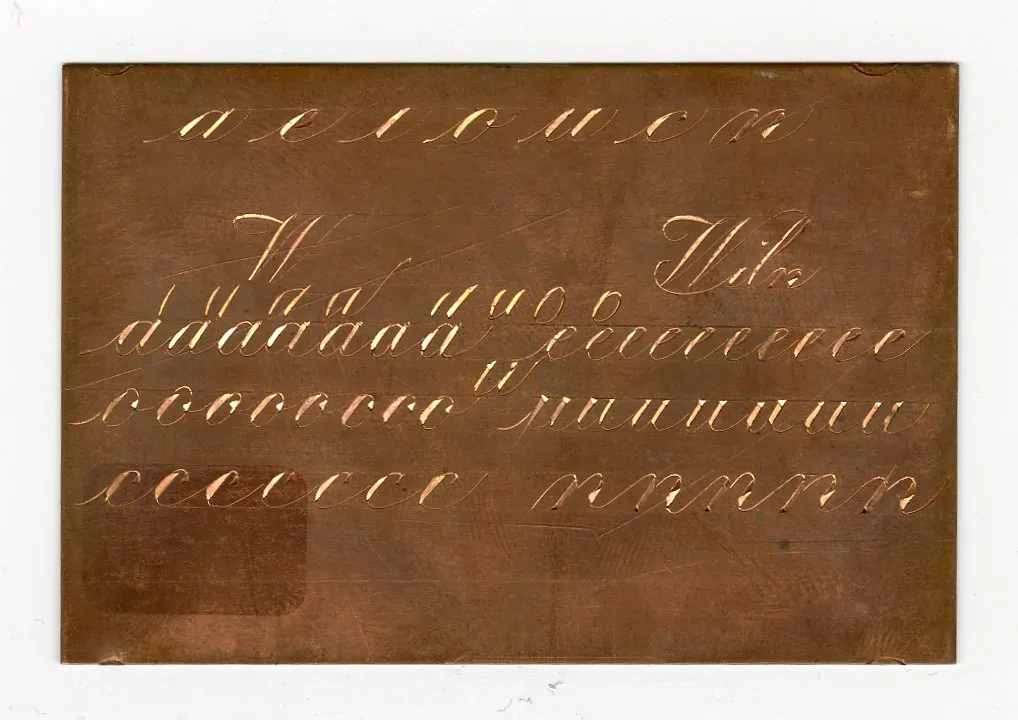 a e i o u c n
W Wiln
a a a a a a a e e e e e e e e e
o o o o o o o o u u u u u u u u
c c c c c c c n n n n n n